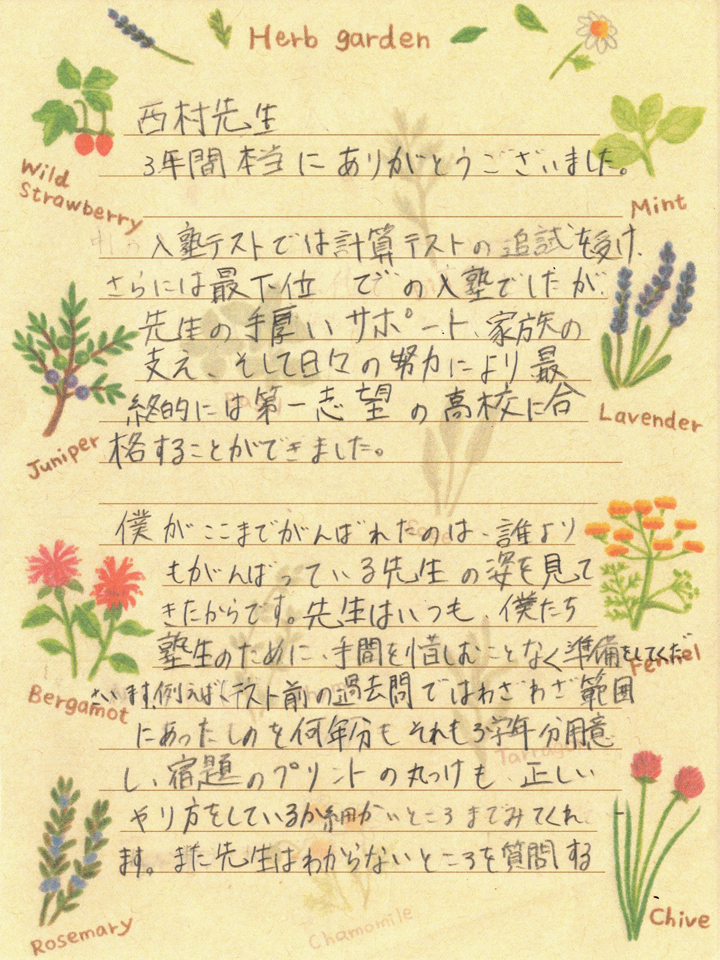 Herb garden
Wild Strawberry
Mint
Juniper
Lavender
Bergamot
Fennel
Rosemary
Chive
Chamomile
西村先生
3年間本当にありがとうございました。
入塾テストでは計算テストの追試を受け、
さらには最下位での入塾でしたが
先生の手厚いサポート、家族の
支え、そして日々の努力により最
終的には第一志望の高校に合
格することができました。
僕がここまでがんばれたのは、誰より
もがんばっている先生の姿を見て
きたからです。先生はいつも、僕たち
塾生のために、手間を惜しむことなく準備をしてくださ
います。例えば、テスト前の過去問ではわざわざ範囲
にあったものを何年分もそれも3学年分用意
し、宿題のプリントの丸つけも、正しい
やり方をしているか細かいところまでみてくれ
ます。また先生はわからないところを質問する